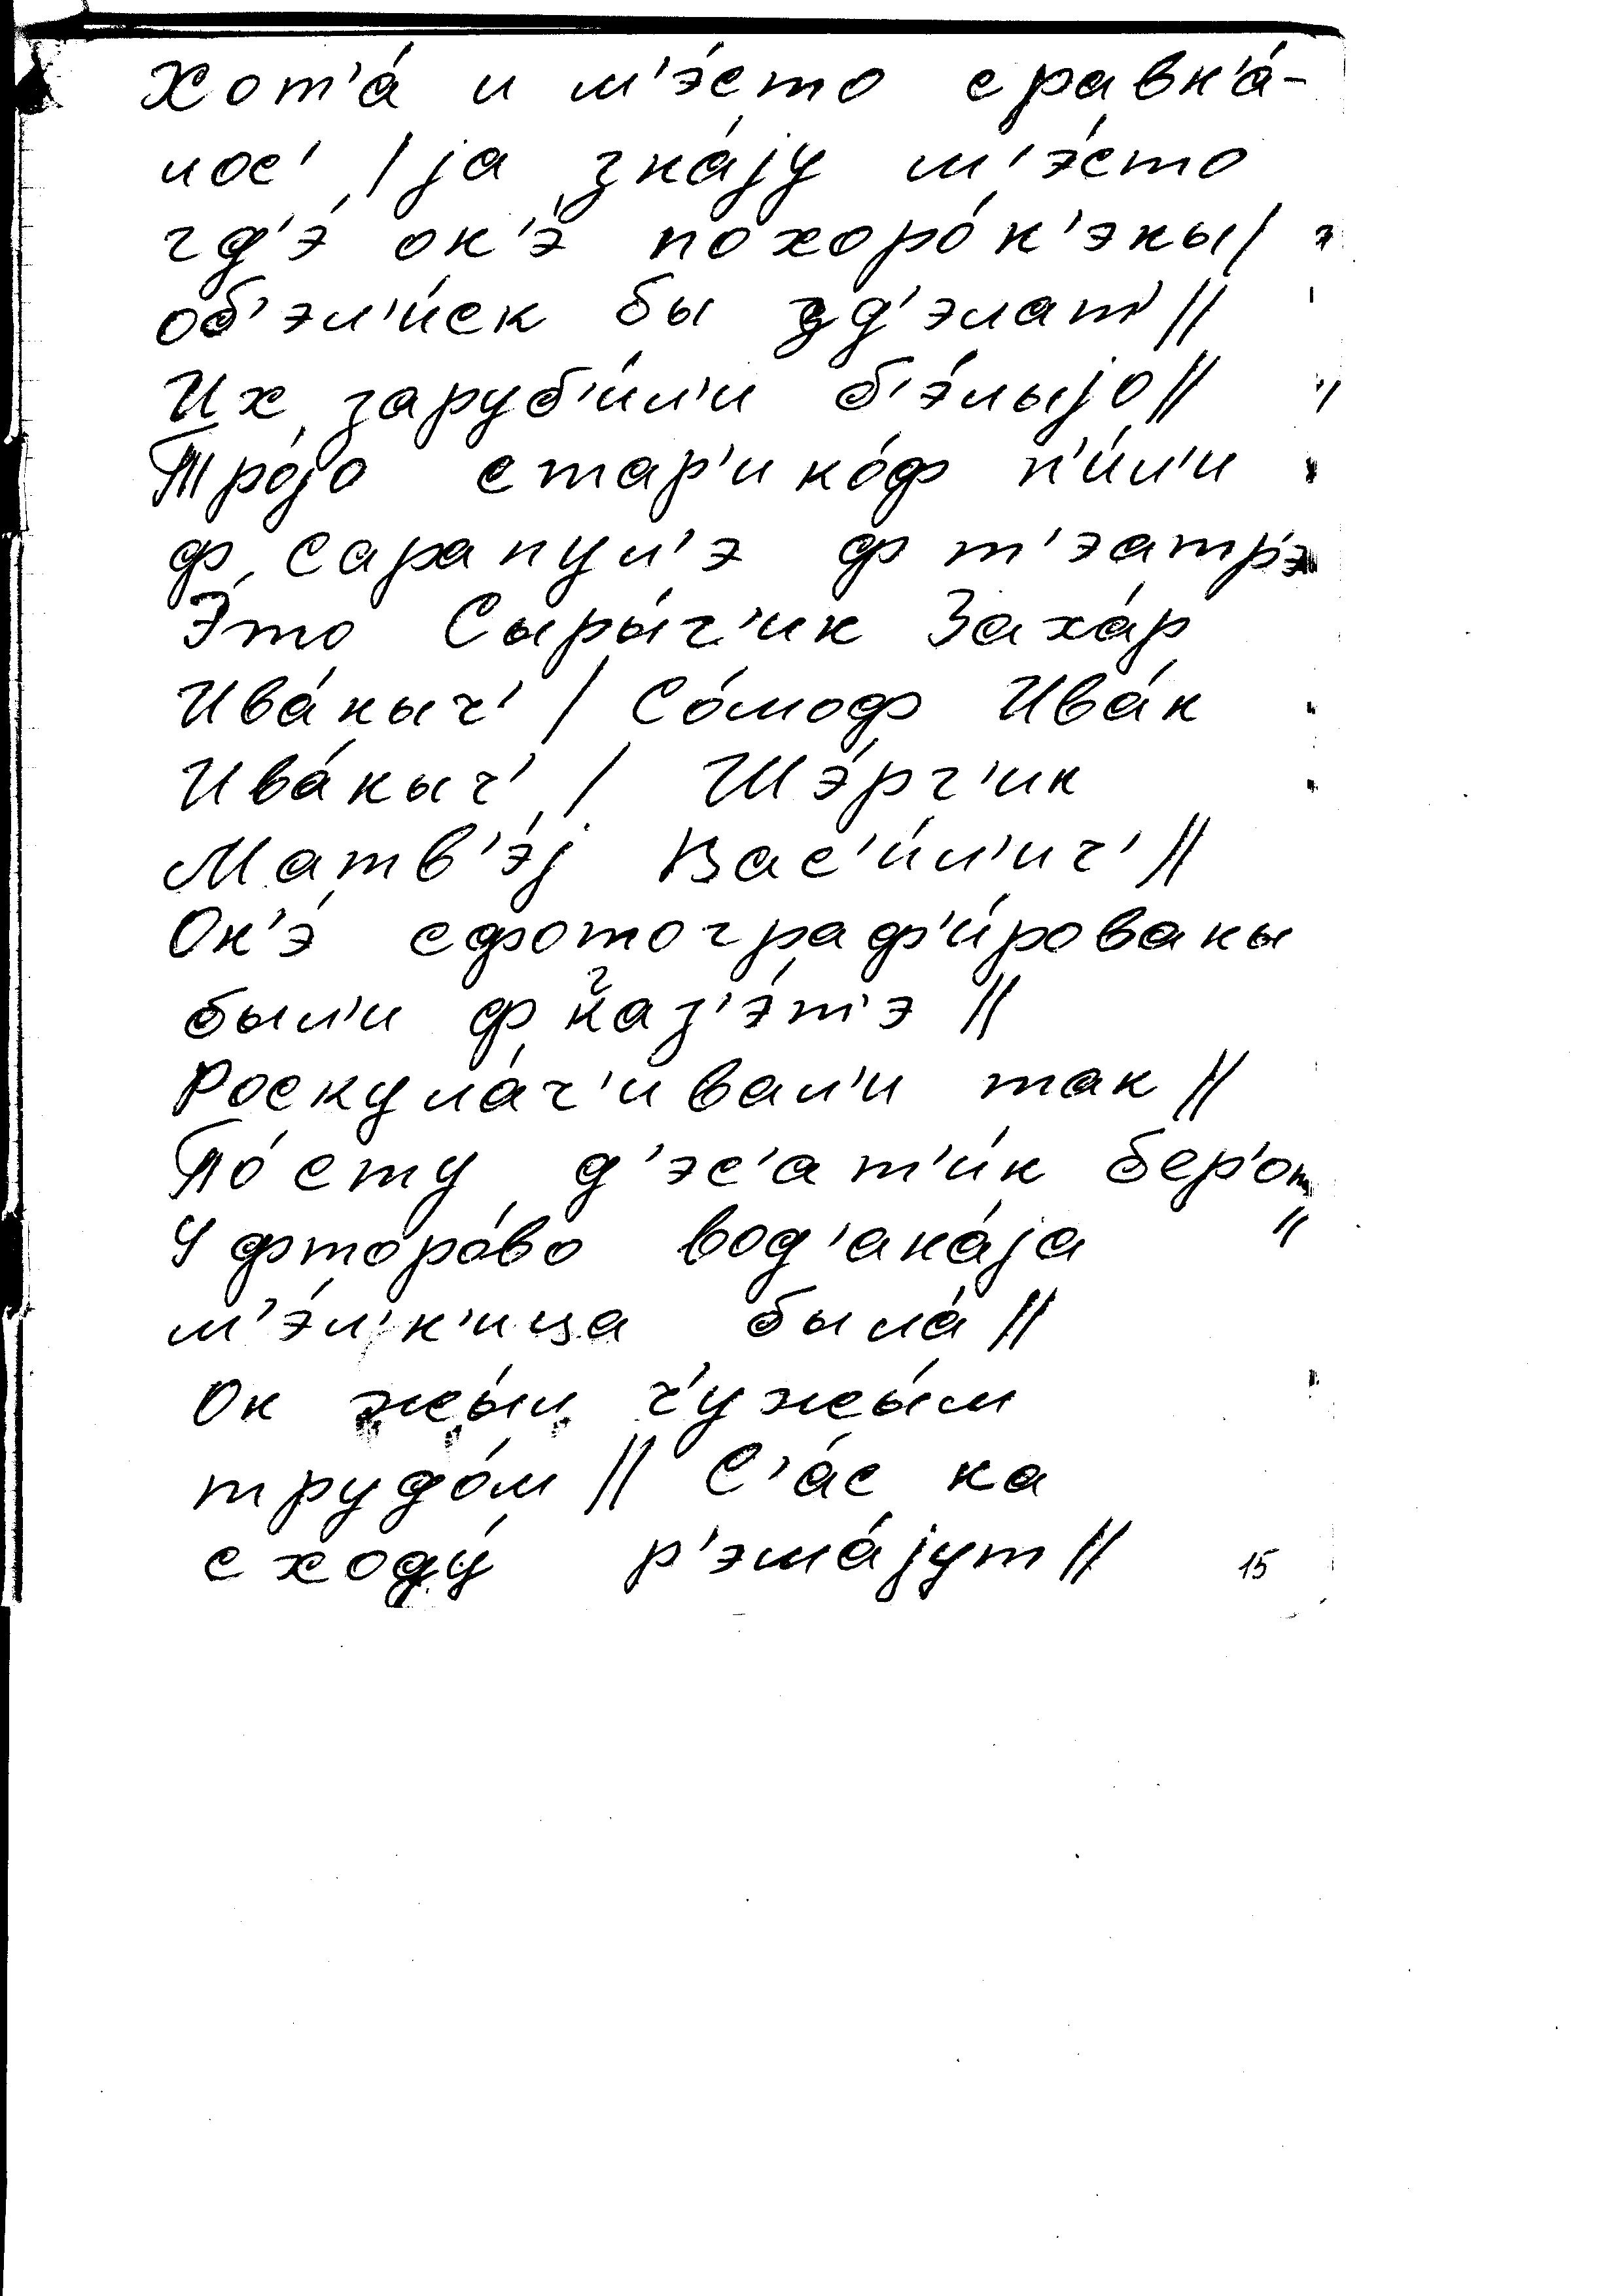 Хот'а́ и м'э́сто сравн'а́-
лос' / jа зна́jу м'э́сто
гд'э́ он'э́ похоро́н'эны /
об'эл'и́ск бы зд'элат' //
Их заруб'и́л'и б'э́лыjо //
Тро́jо стар'ико́ф п'и́л'и
ф Сарапул'э ф т'эатр'э
Э́то Сыры́г'ин Заха́р
Ива́ныч' / Со́моф Ива́н
Ива́ныч' / Шэ́рг'ин
Матв'э́j Вас'и́л'ич' //
Он'э́ сфотограф'и́рованы
был'и ф газ'э́т'э //
Роскула́ч'ивал'и так //
По́ сту д'эс'ат'и́н бер'от
У фторо́во вод'ана́jа "
м'э́л'н'ица была́ //
Он жы́л ч'ужы́м
трудо́м // С'а́с на
сходу́ р'эша́jут // 15